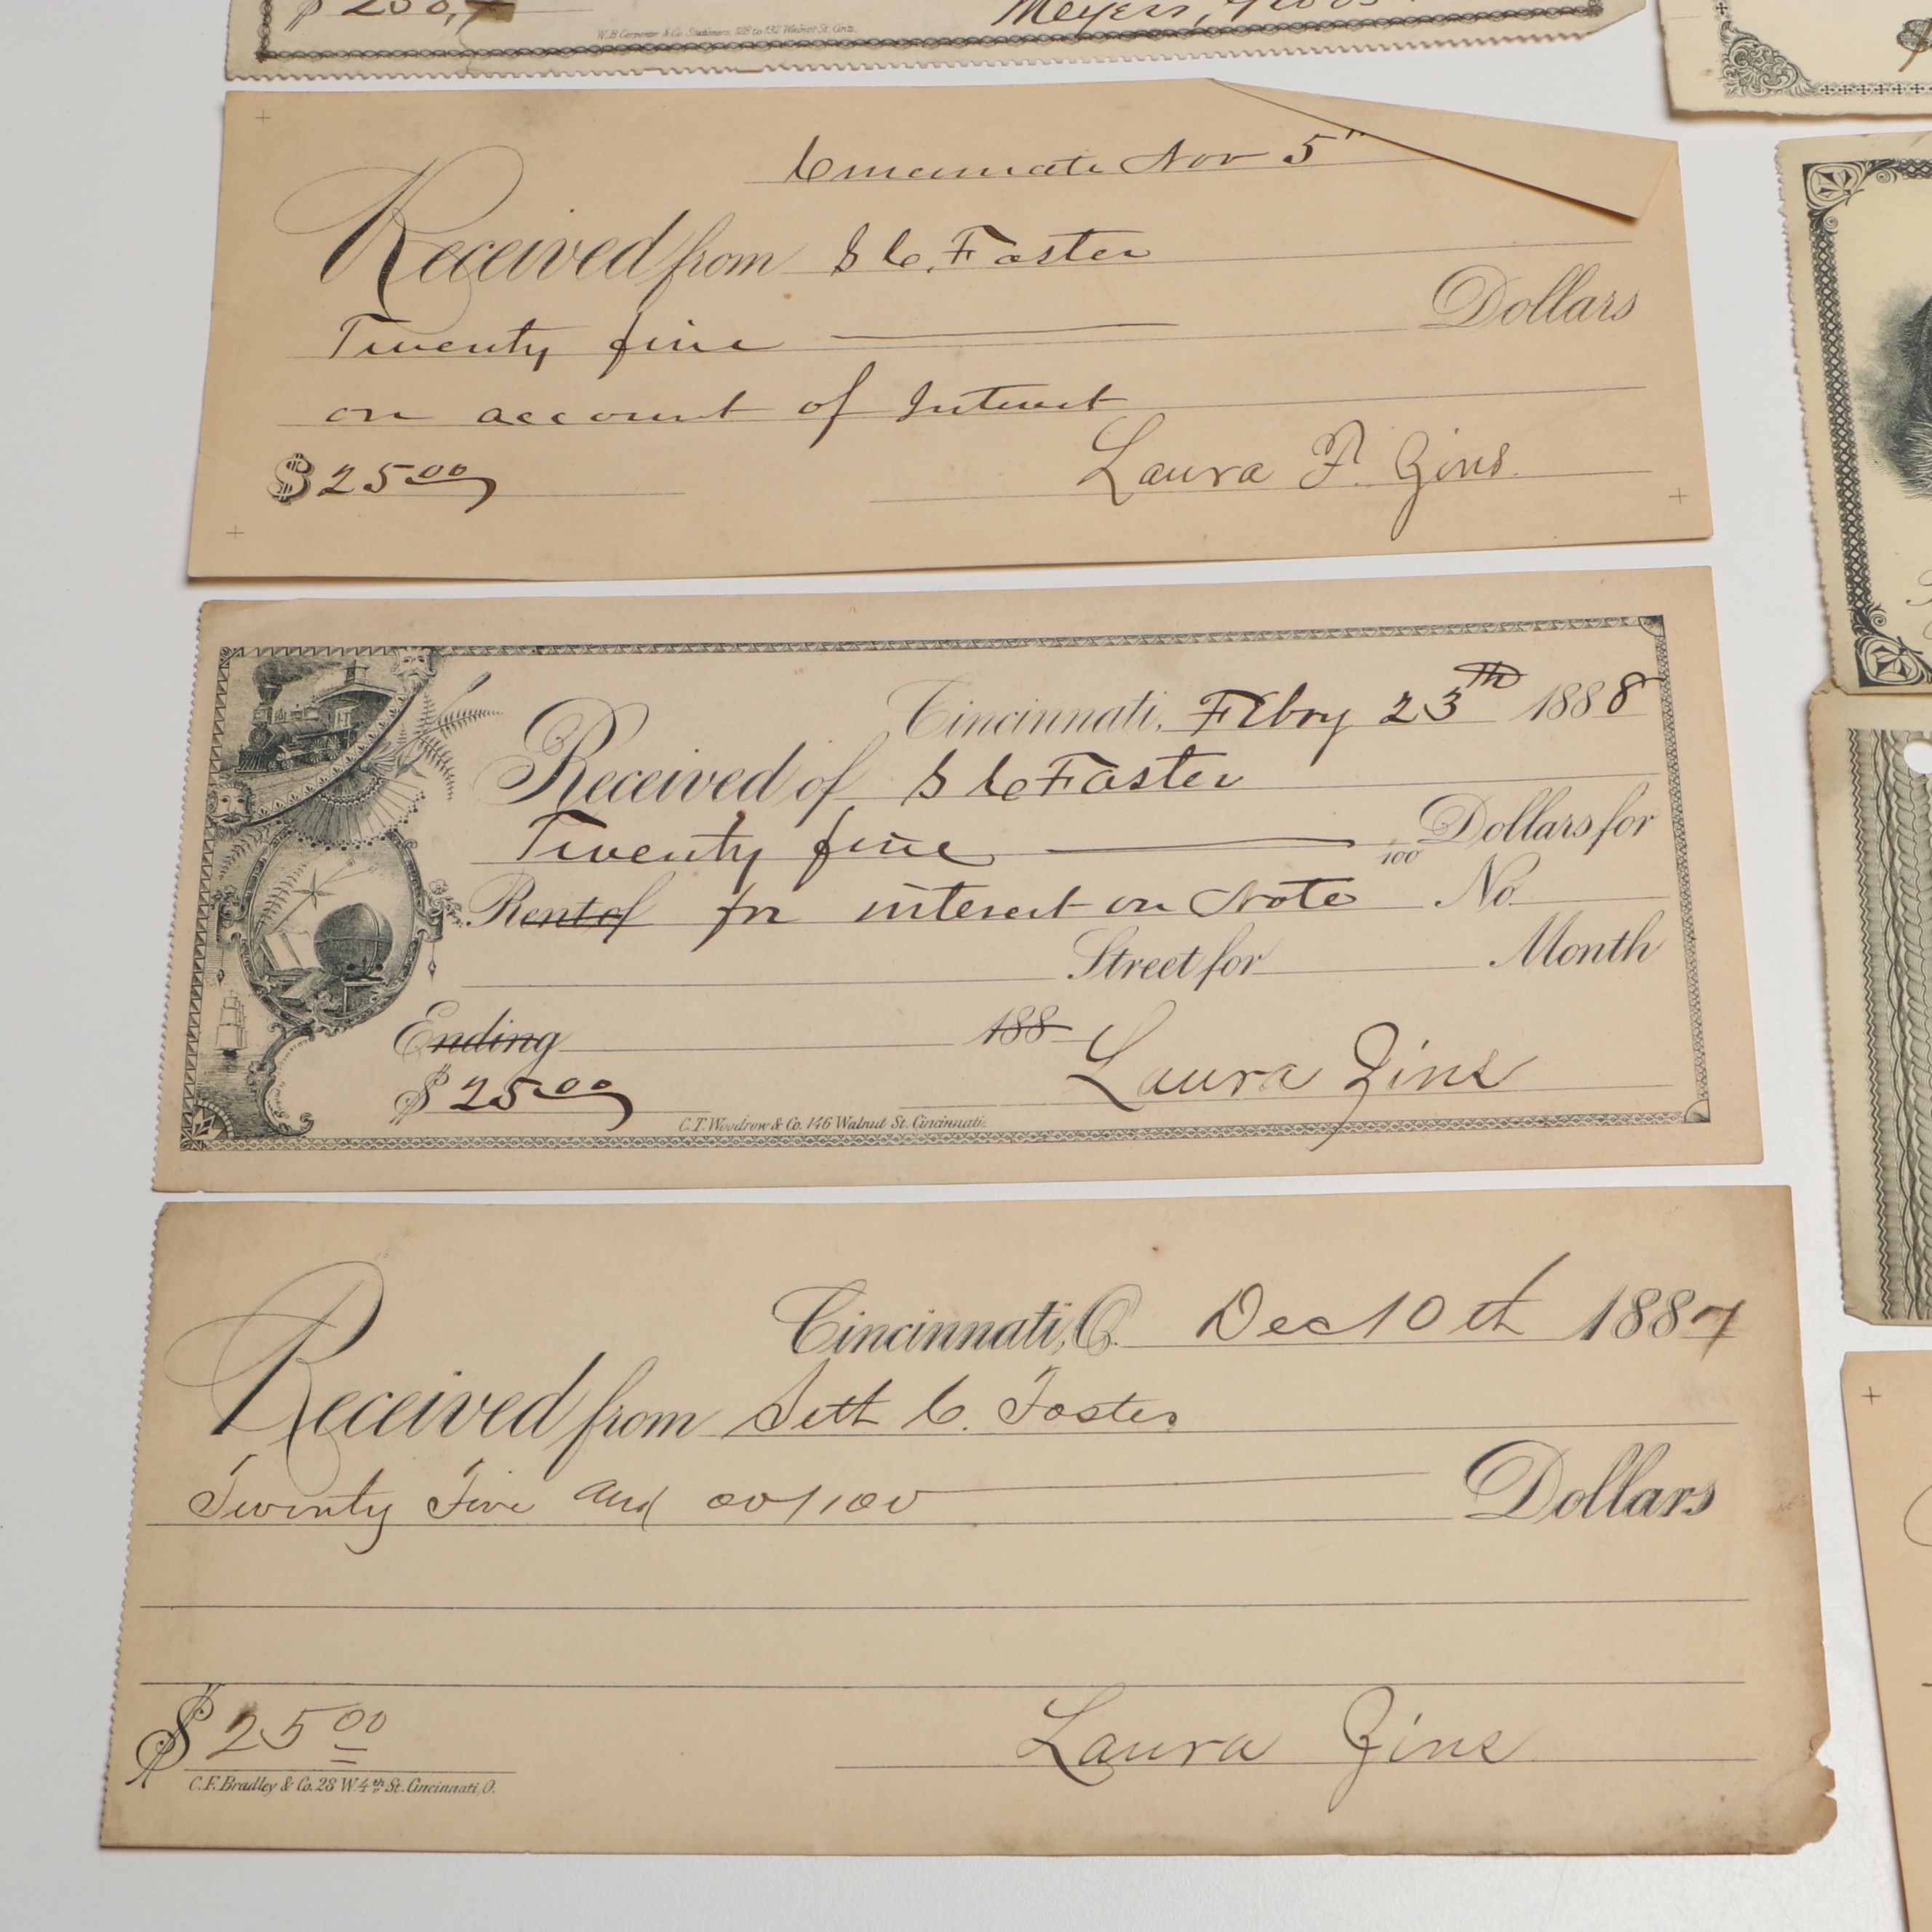 $ 250,
W.B Carpenter & Co. Stationers, 128 to 132 Walnut St. Cinti.
Meyers,
Cincinnati Nov 5"
Received from S C. Foster
Twenty five Dollars
on account of Interest
$ 25 00
Laura F. Zins
Cincinnati, Febry 23th 1888
Received of S C Foster
Twenty five 100 Dollars for
Rent of for interest on Note No.
Street for Month
Ending 188
$ 25 00
Laura Zins
C.T. Woodrow & Co. 146 Walnut St. Cincinnati.
Cincinnati, O. Dec 10th 1887
Received from Seth C. Foster
Twenty Five and 00/100
Dollars
$ 25 00
Laura Zins
C.F. Bradley & Co. 28 W. 4th St. Cincinnati, O.